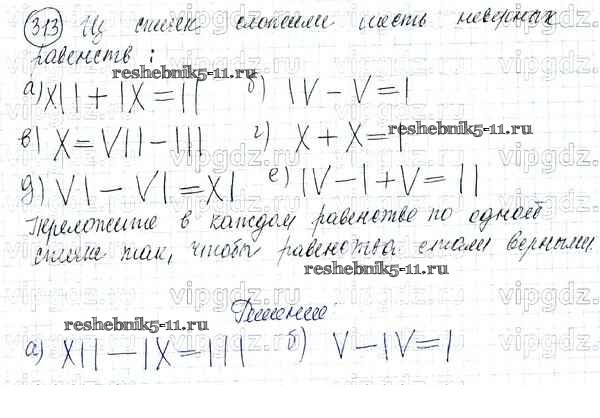 313 Из спичек сложили шесть неверных
равенств:
а) XII + IX = II б) IV - V = I
в) X = VII - III г) X + X = I
д) VI - VI = XI е) IV - I + V = II
Переложите в каждом равенстве по одной
спичке так, чтобы равенства стали верными.
Решение
а) XII - IX = III б) V - IV = I
reshebnik5-11.ru
reshebnik5-11.ru
reshebnik5-11.ru
reshebnik5-11.ru
reshebnik5-11.ru
vipgdz.
vipgdz.
vipgdz.
vipgdz.